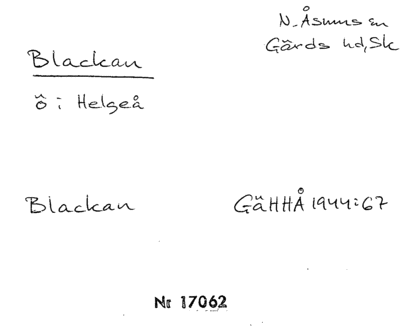 N. Åsums sn
Gärds hd, Sk
Blackan
ö i Helgeå
Blackan GäHHÅ 1944:67
Nr 17062